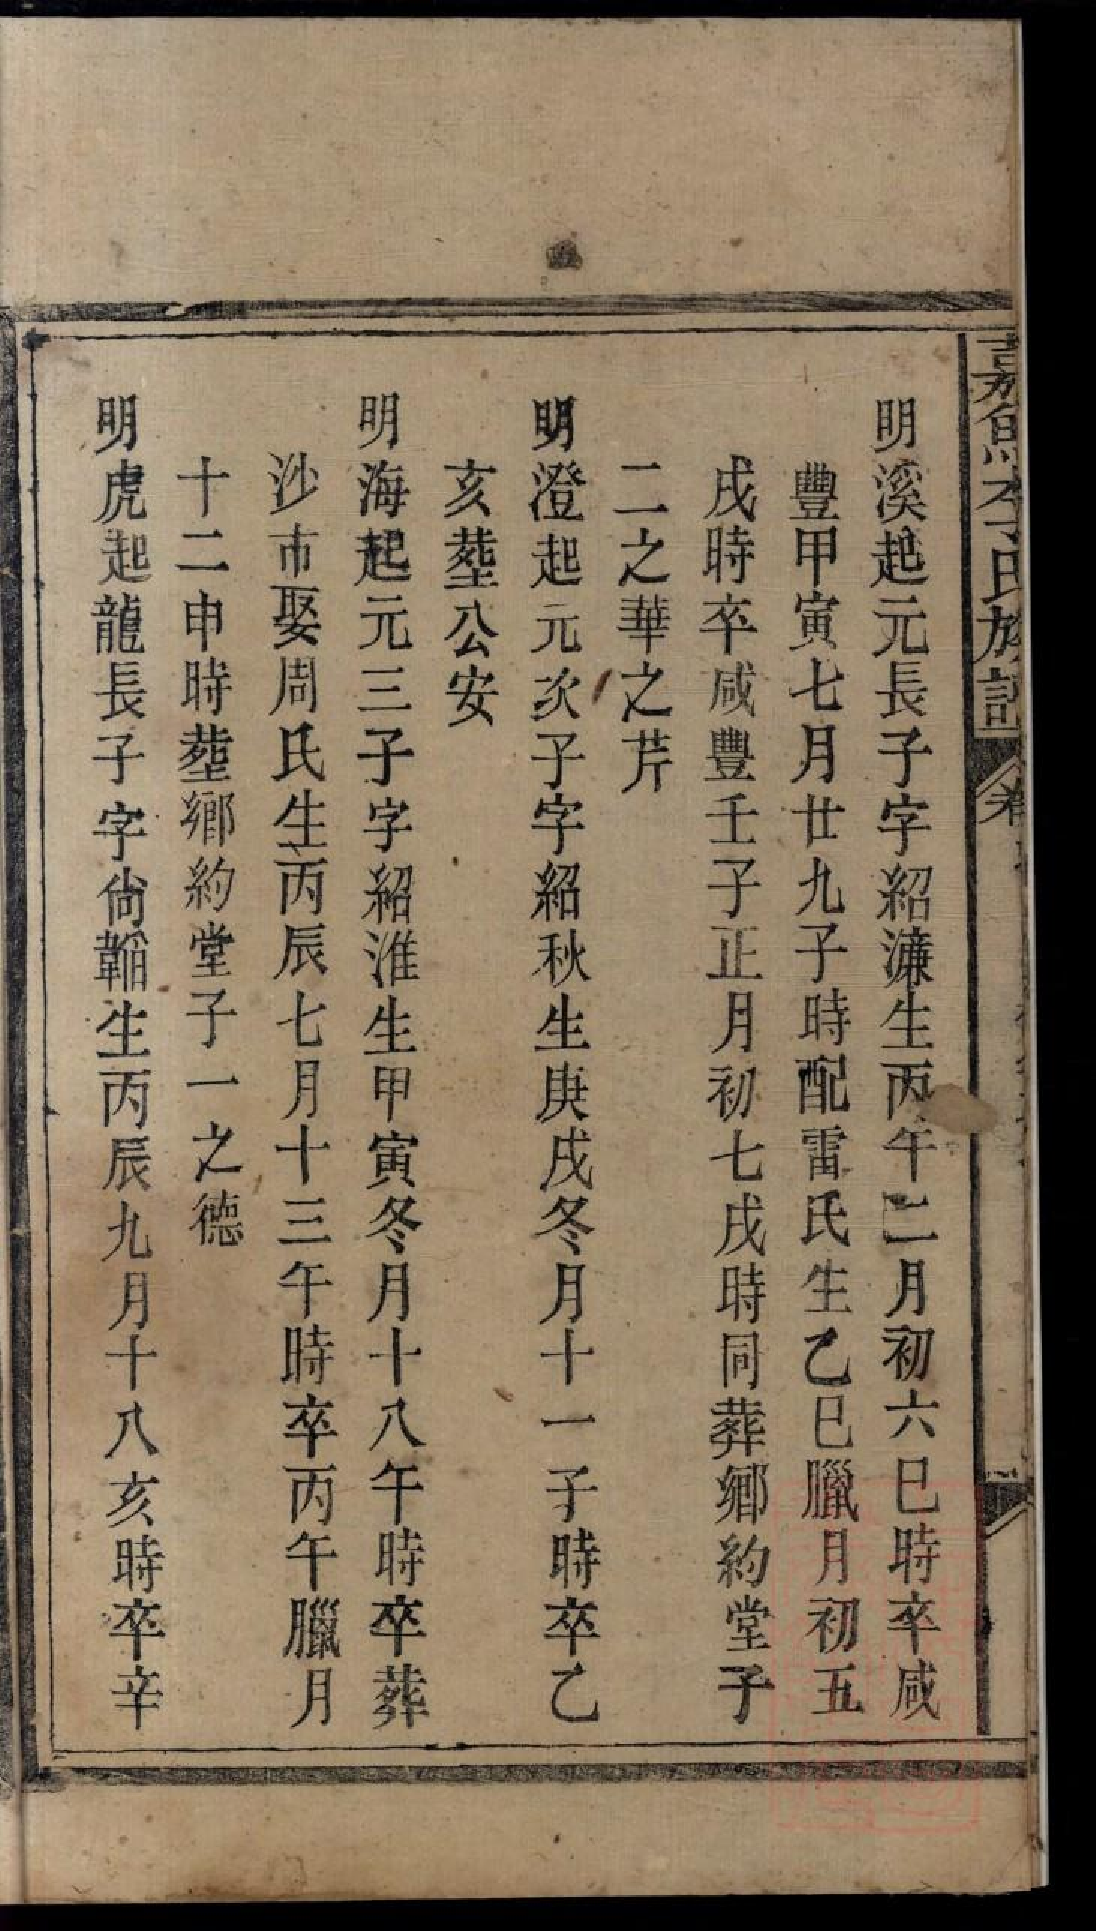 嘉魚李氏族譜
明溪起元長子字紹濂生丙午二月初六巳時卒咸
豐甲寅七月廿九子時配雷氏生乙巳臘月初五
戌時卒咸豐壬子正月初七戌時同葬鄉約堂子
二之華之芹
明澄起元次子字紹秋生庚戌冬月十一子時卒乙
亥塟公安
明海起元三子字紹淮生甲寅冬月十八午時卒葬
沙市娶周氏生丙辰七月十三午時卒丙午臘月
十二申時塟鄉約堂子一之德
明虎起龍長子字尙韜生丙辰九月十八亥時卒辛